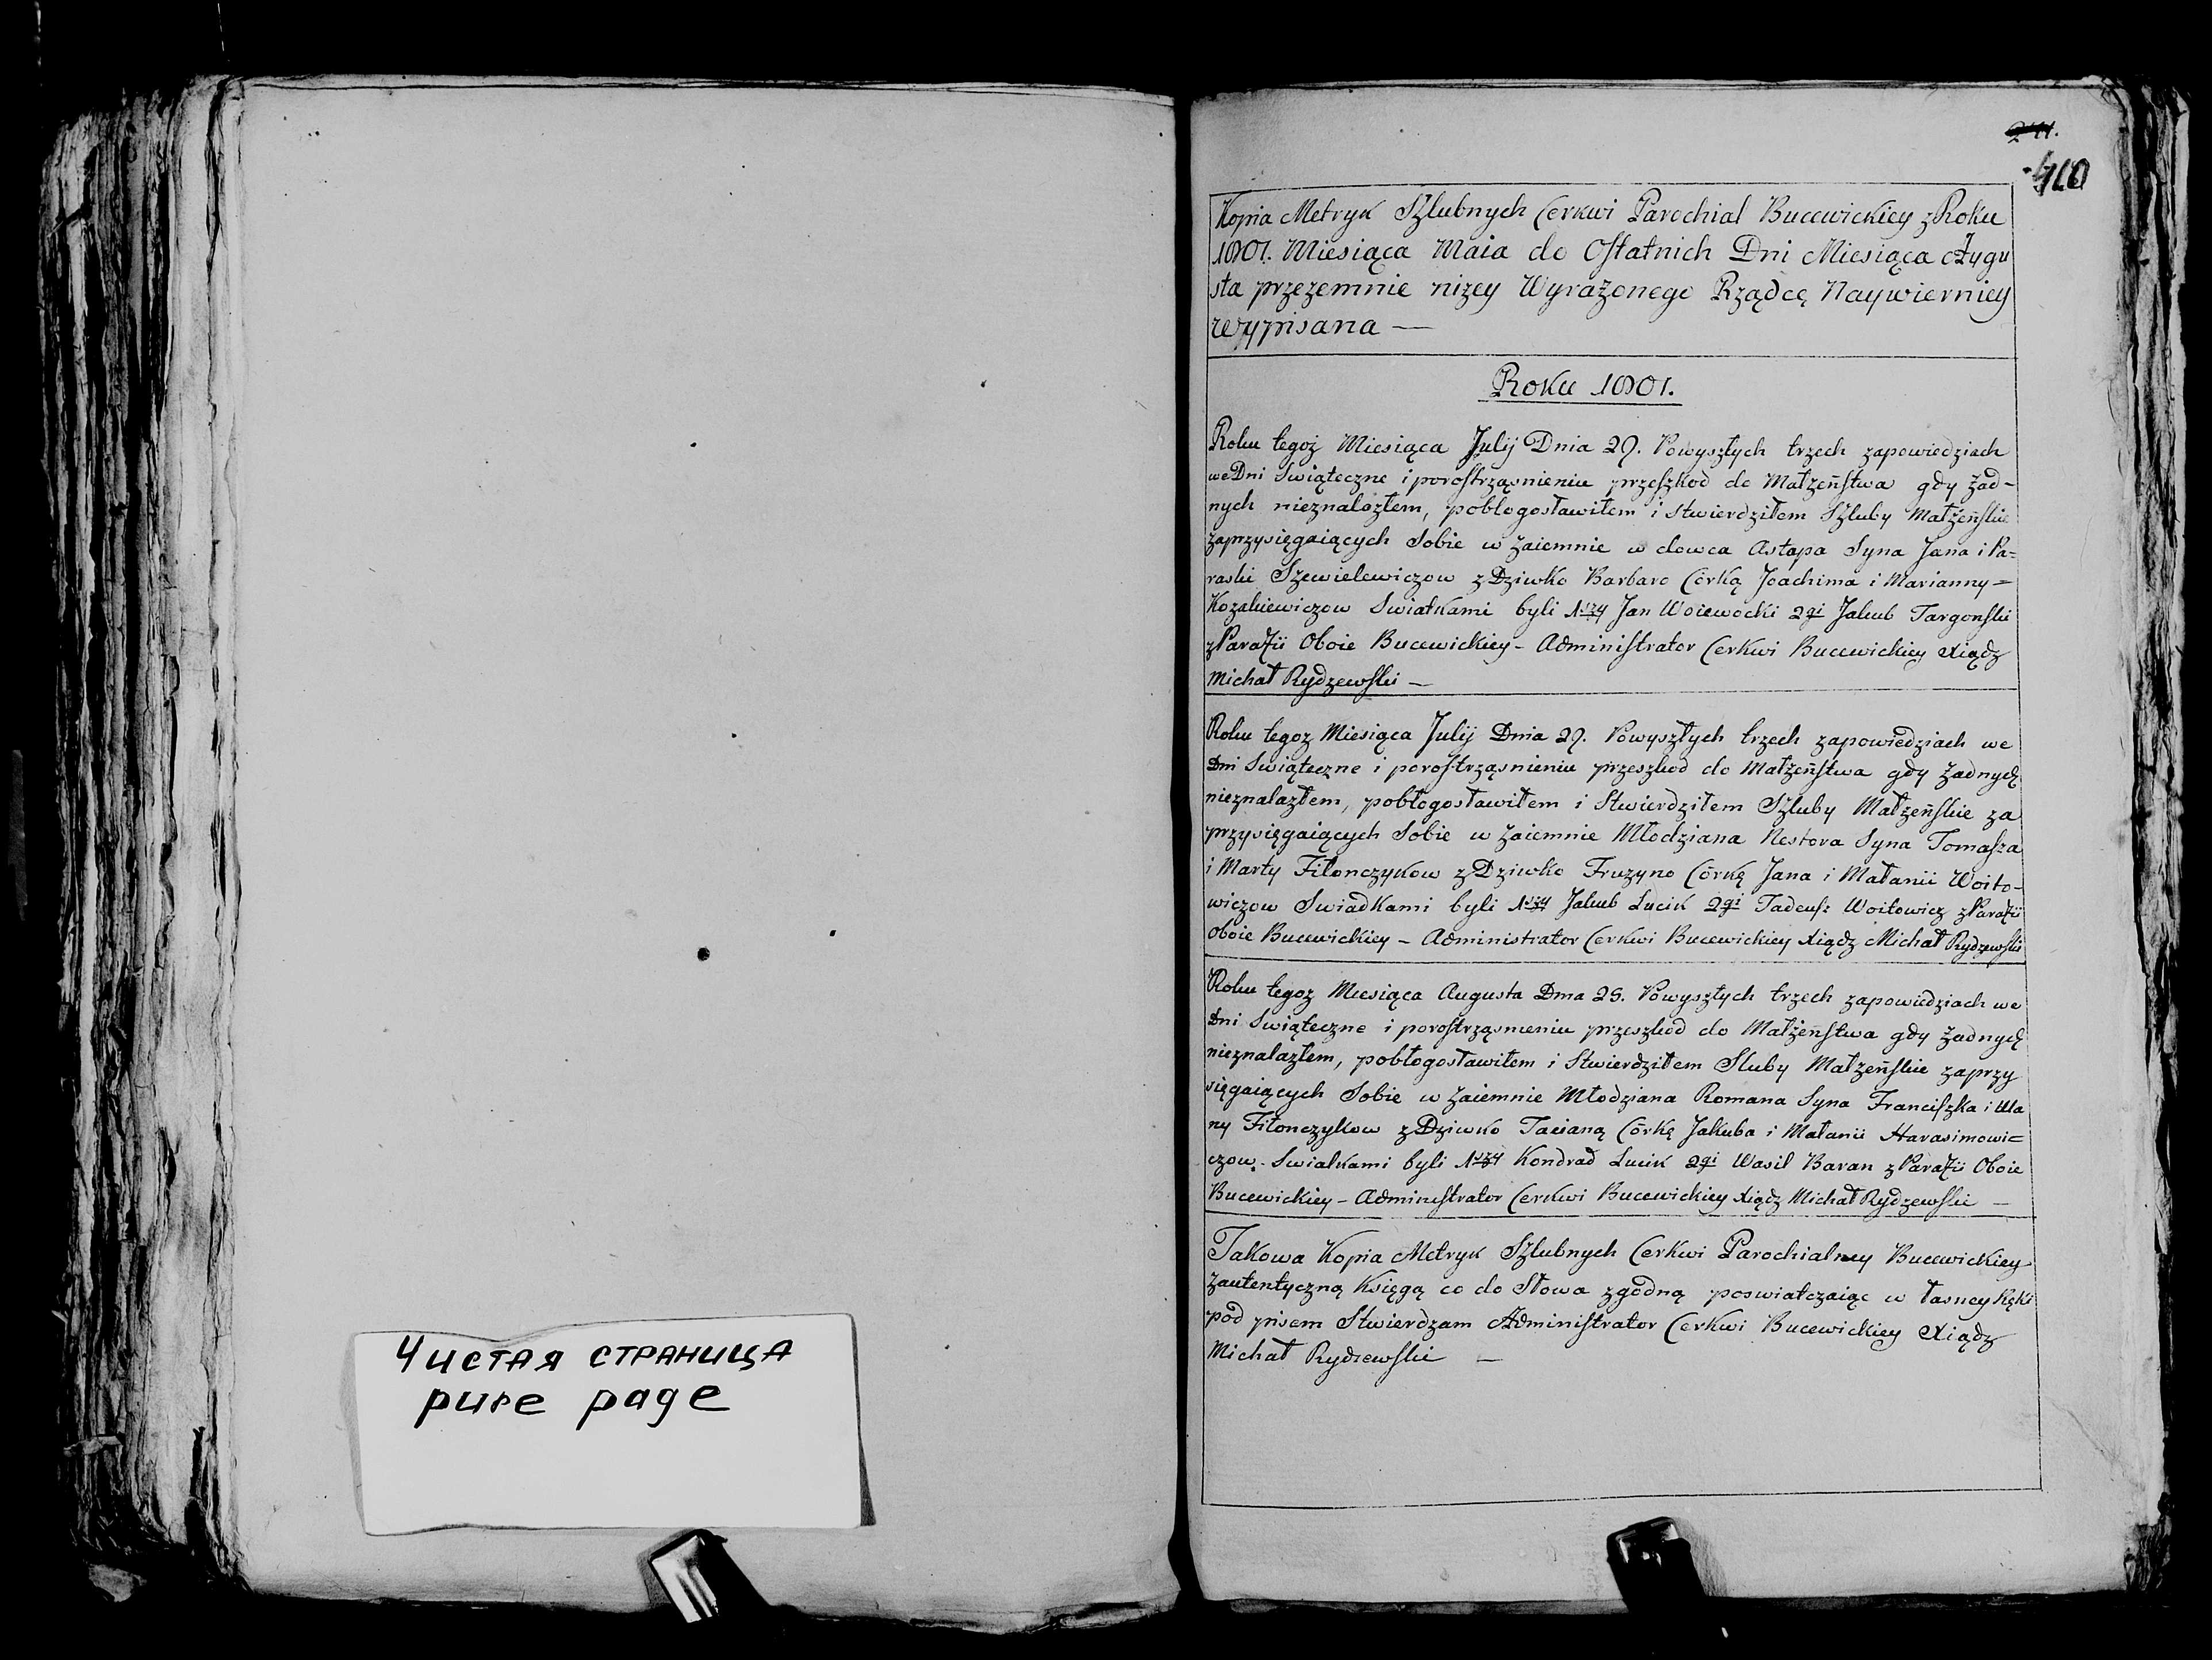 Чистая страница
pure page
410
Kopia Metryk Szlubnych Cerkwi Parochial Bucewickiey z Roku
1801. Miesiąca Maia do Ostatnich Dni Miesiąca Augu
sta przezemnie niżey Wyrażonego Rządcę Naywierniey
wypisana —
Roku 1801.
Roku tegoż Miesiąca Julij Dnia 29. Powyszłych trzech zapowiedziach
we Dni Swiąteczne i porostrząsnieniu przeszkod do Małżeństwa gdy żad-
nych nieznalazłem, pobłogosławiłem i stwierdziłem Szluby Małżeńskie
zaprzysięgaiących Sobie w zaiemnie w dowca Astapa Syna Jana i Pa=
raski Szewielewiczow z Dziwko Barbaro Córką Joachima i Marianny=
Kozakiewiczow Swiatkami byli 1szy Jan Woiewocki 2gi Jakub Targonski
z Parafii Oboie Bucewickiey - Administrator Cerkwi Bucewickiey Xiądz
Michał Rydzewski —
Roku tegoz Miesiąca Julij Dnia 29. Powyszłych trzech zapowiedziach we
Dni Swiąteczne i porostrząsnieniu przeszkod do Małżeństwa gdy żadnych
nieznalazłem, pobłogosławiłem i Stwierdziłem Szluby Małżeńskie za
przysięgaiących Sobie w zaiemnie Młodziana Nestora Syna Tomasza
i Marty Filonczykow z Dziwko Fruzyno Córkę Jana i Małanii Woito-
wiczow Swiadkami byli 1szy Jakub Lucik 2gi Tadeusz Woitowicz z Parafii
Oboie Bucewickiey - Administrator Cerkwi Bucewickiey Xiądz Michał Rydzewski
Roku tegoz Miesiąca Augusta Dnia 25. Powyszłych trzech zapowiedziach we
Dni Swiąteczne i porostrząsnieniu przeszkod do Małżeństwa gdy żadnych
nieznalazłem, pobłogosławiłem i Stwierdziłem Sluby Małżeńskie zaprzy
sięgaiących Sobie w zaiemnie Młodziana Romana Syna Franciszka i Ula
ny Filonczykow z Dziwko Tacianą Córkę Jakuba i Małanii Harasimowic=
czow. Swiatkami byli 1szy Kondrad Lucik 2gi Wasil Baran z Parafii Oboie
Bucewickiey - Administrator Cerkwi Bucewickiey Xiądz Michał Rydzewski —
Takowa Kopia Metryk Szlubnych Cerkwi Parochialney Bucewickiey
zautentyczną Księgą co do Słowa zgodną poswiatczaiąc w łasney Ręki
pod pisem Stwierdzam Administrator Cerkwi Bucewickiey Xiądz
Michał Rydzewski —